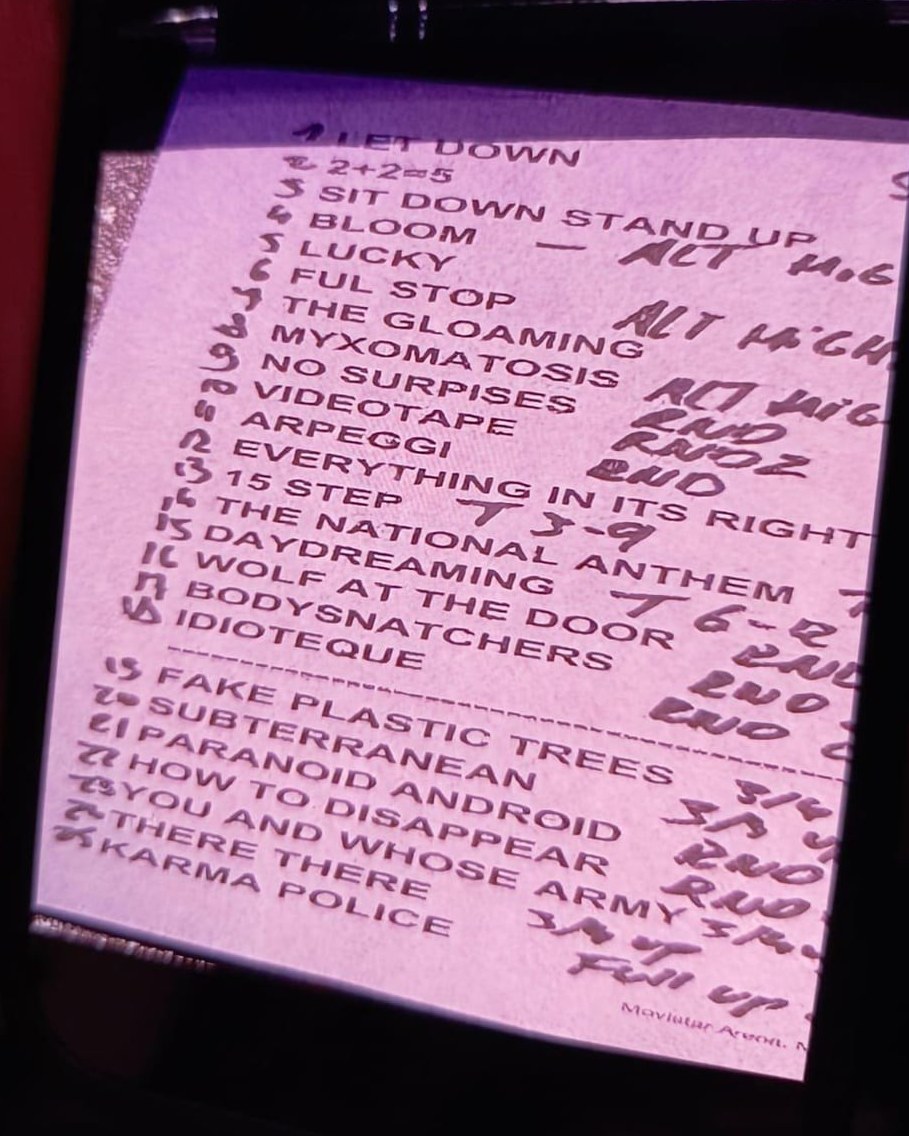 1 LET DOWN
2 2+2=5
3 SIT DOWN STAND UP
4 BLOOM — ALT HIG
5 LUCKY
6 FUL STOP ALT HIGH
7 THE GLOAMING
8 MYXOMATOSIS ALT HIG
9 NO SURPISES RND
10 VIDEOTAPE RND2
11 ARPEGGI RND
12 EVERYTHING IN ITS RIGHT
13 15 STEP T 3-9
14 THE NATIONAL ANTHEM T
15 DAYDREAMING T 6-12
16 WOLF AT THE DOOR RND
17 BODYSNATCHERS RND
18 IDIOTEQUE RND
19 FAKE PLASTIC TREES 3/4
20 SUBTERRANEAN
21 PARANOID ANDROID 3/4
22 HOW TO DISAPPEAR RND
23 YOU AND WHOSE ARMY RND 3/4
24 THERE THERE 3/4 UP
25 KARMA POLICE FULL UP
Movistar Arena,